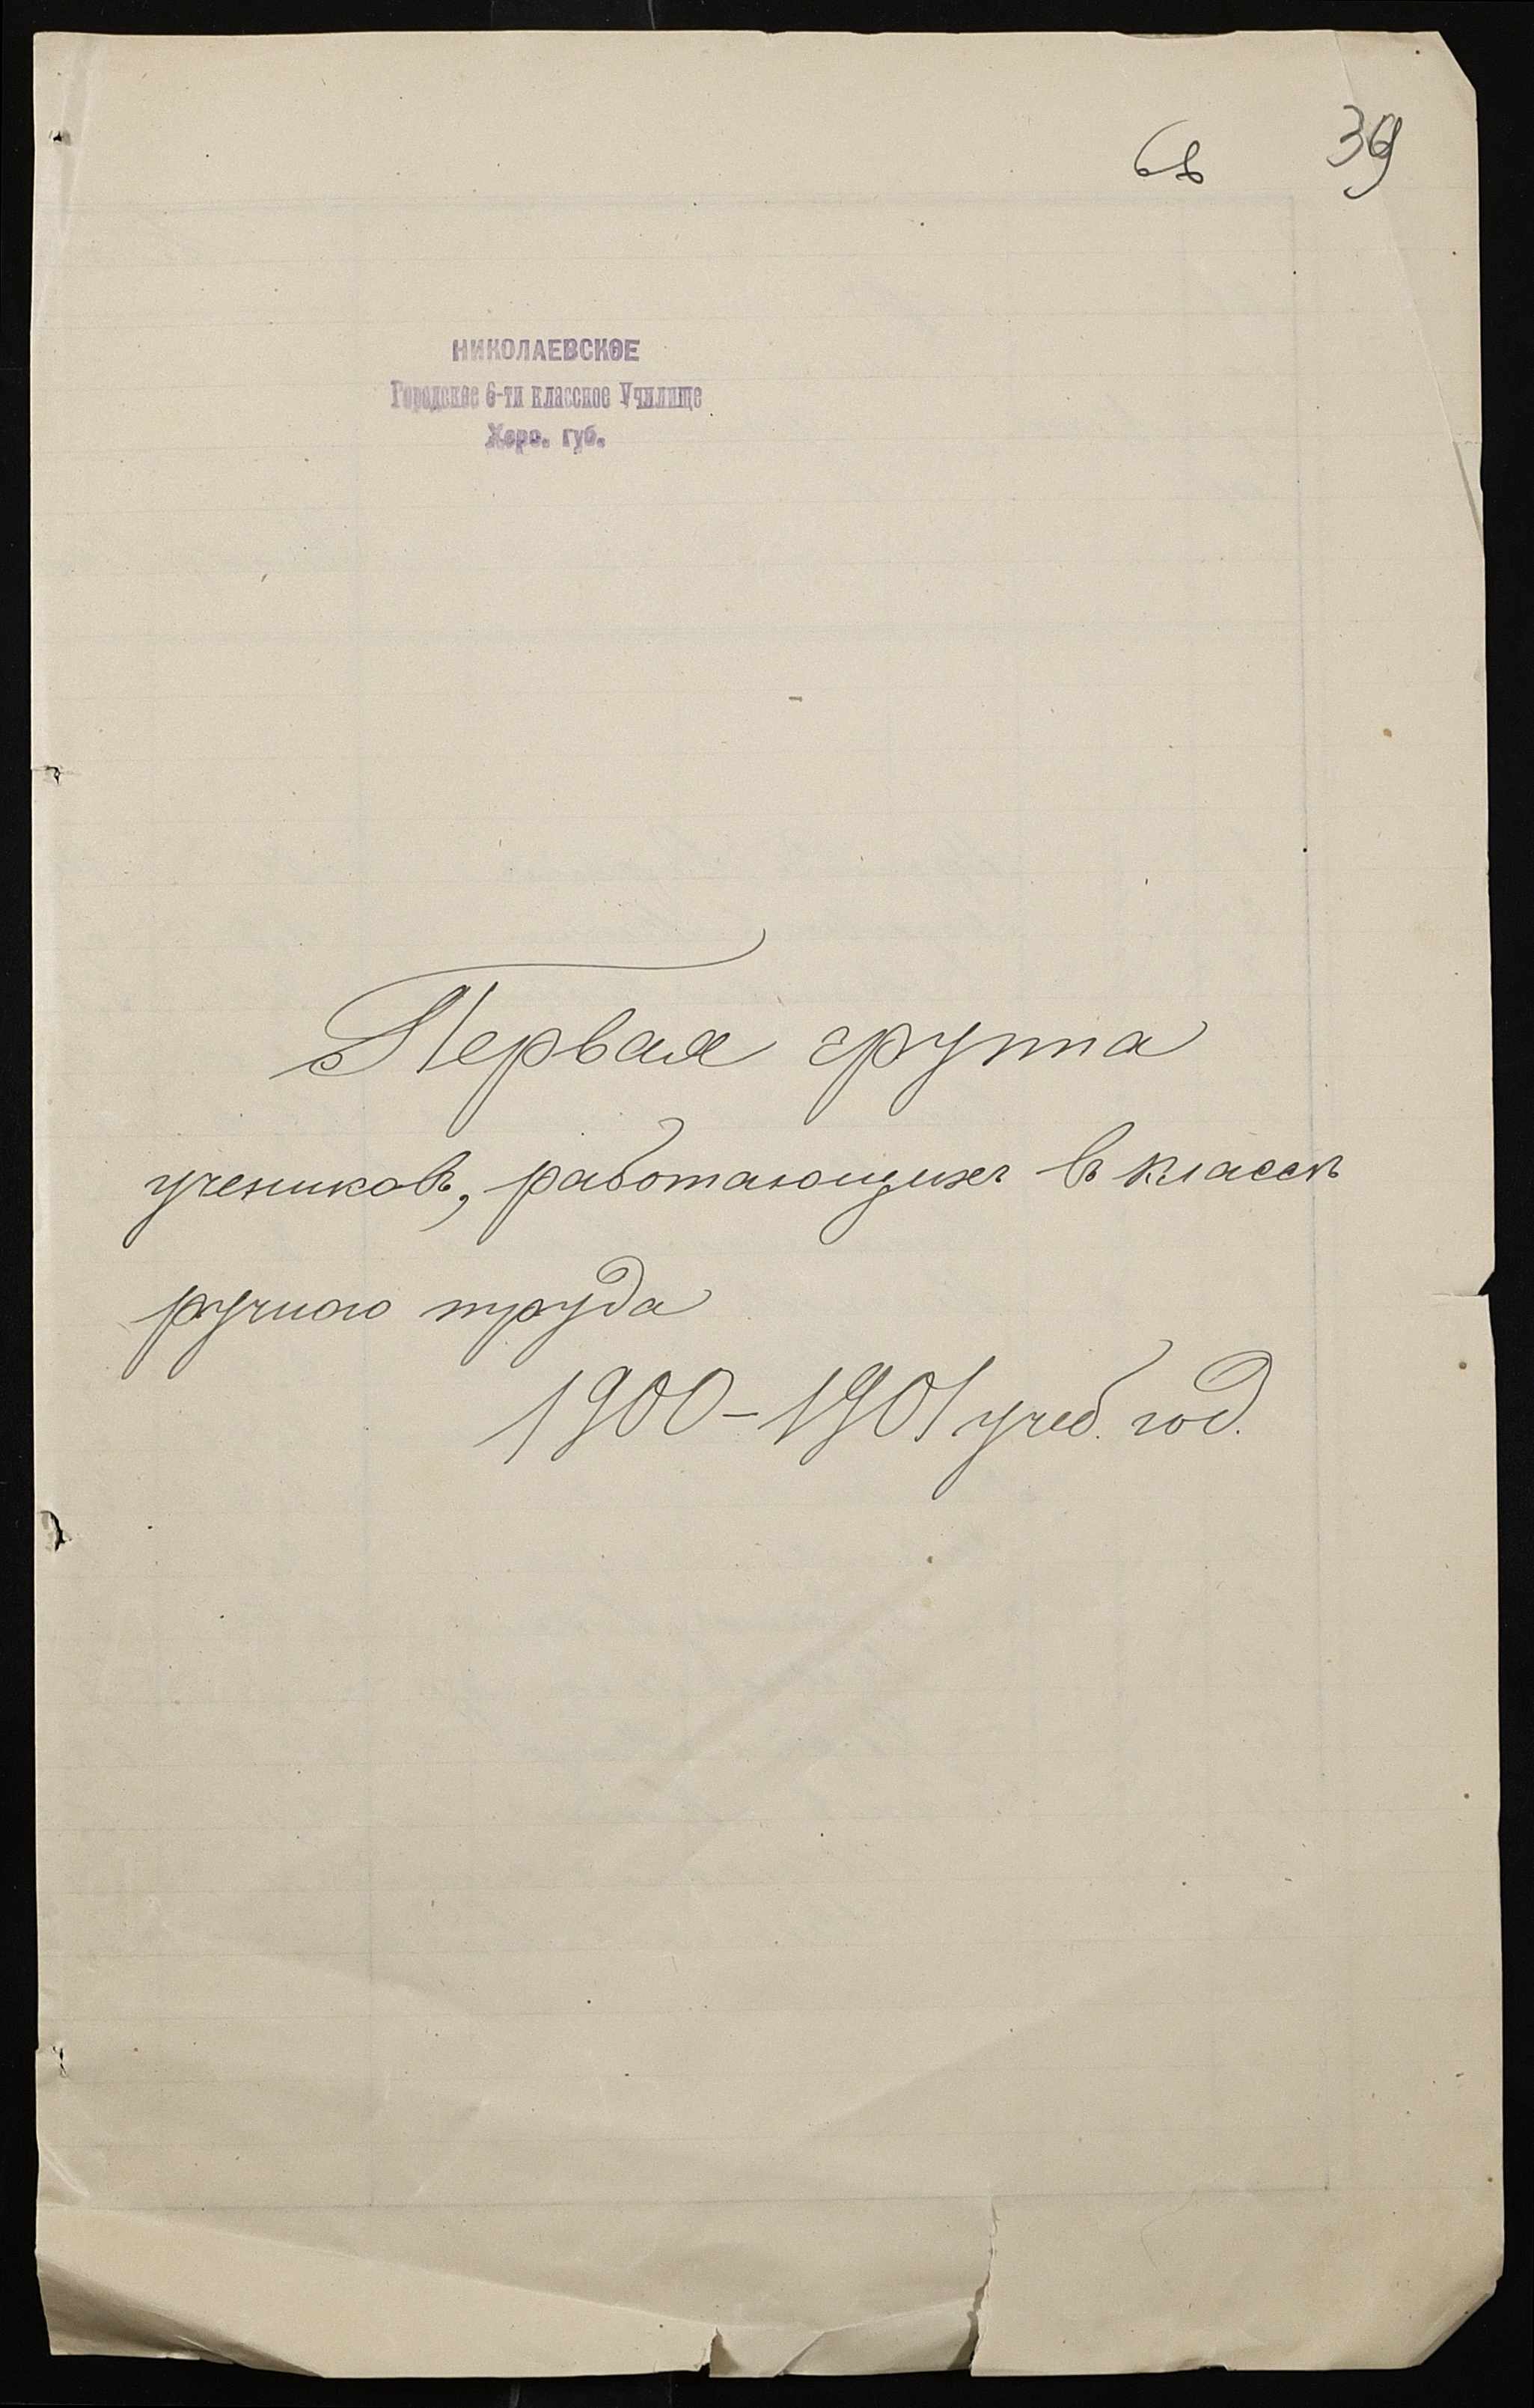 39
НИКОЛАЕВСКОЕ
Городское 6-ти классное Училище
Херс. губ.
Первая группа
учениковъ, работающихъ въ классѣ
ручного труда
1900-1901 учеб. год.